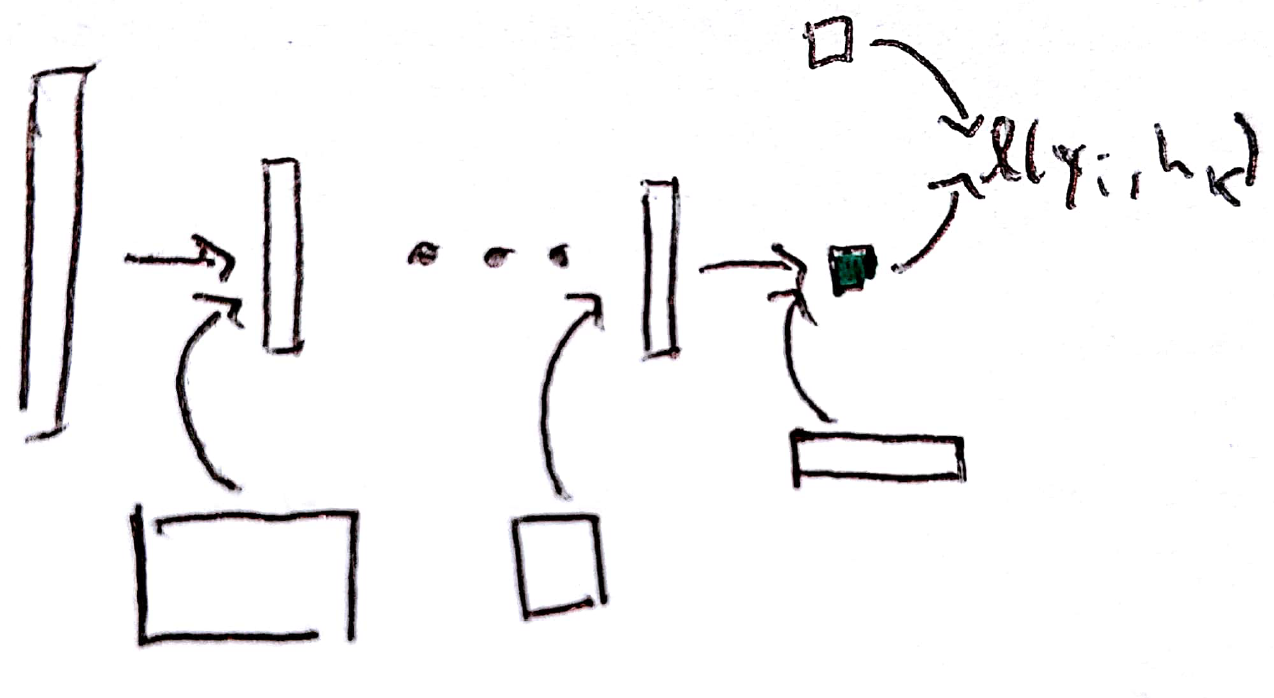 ℓ(yᵢ, h_K)